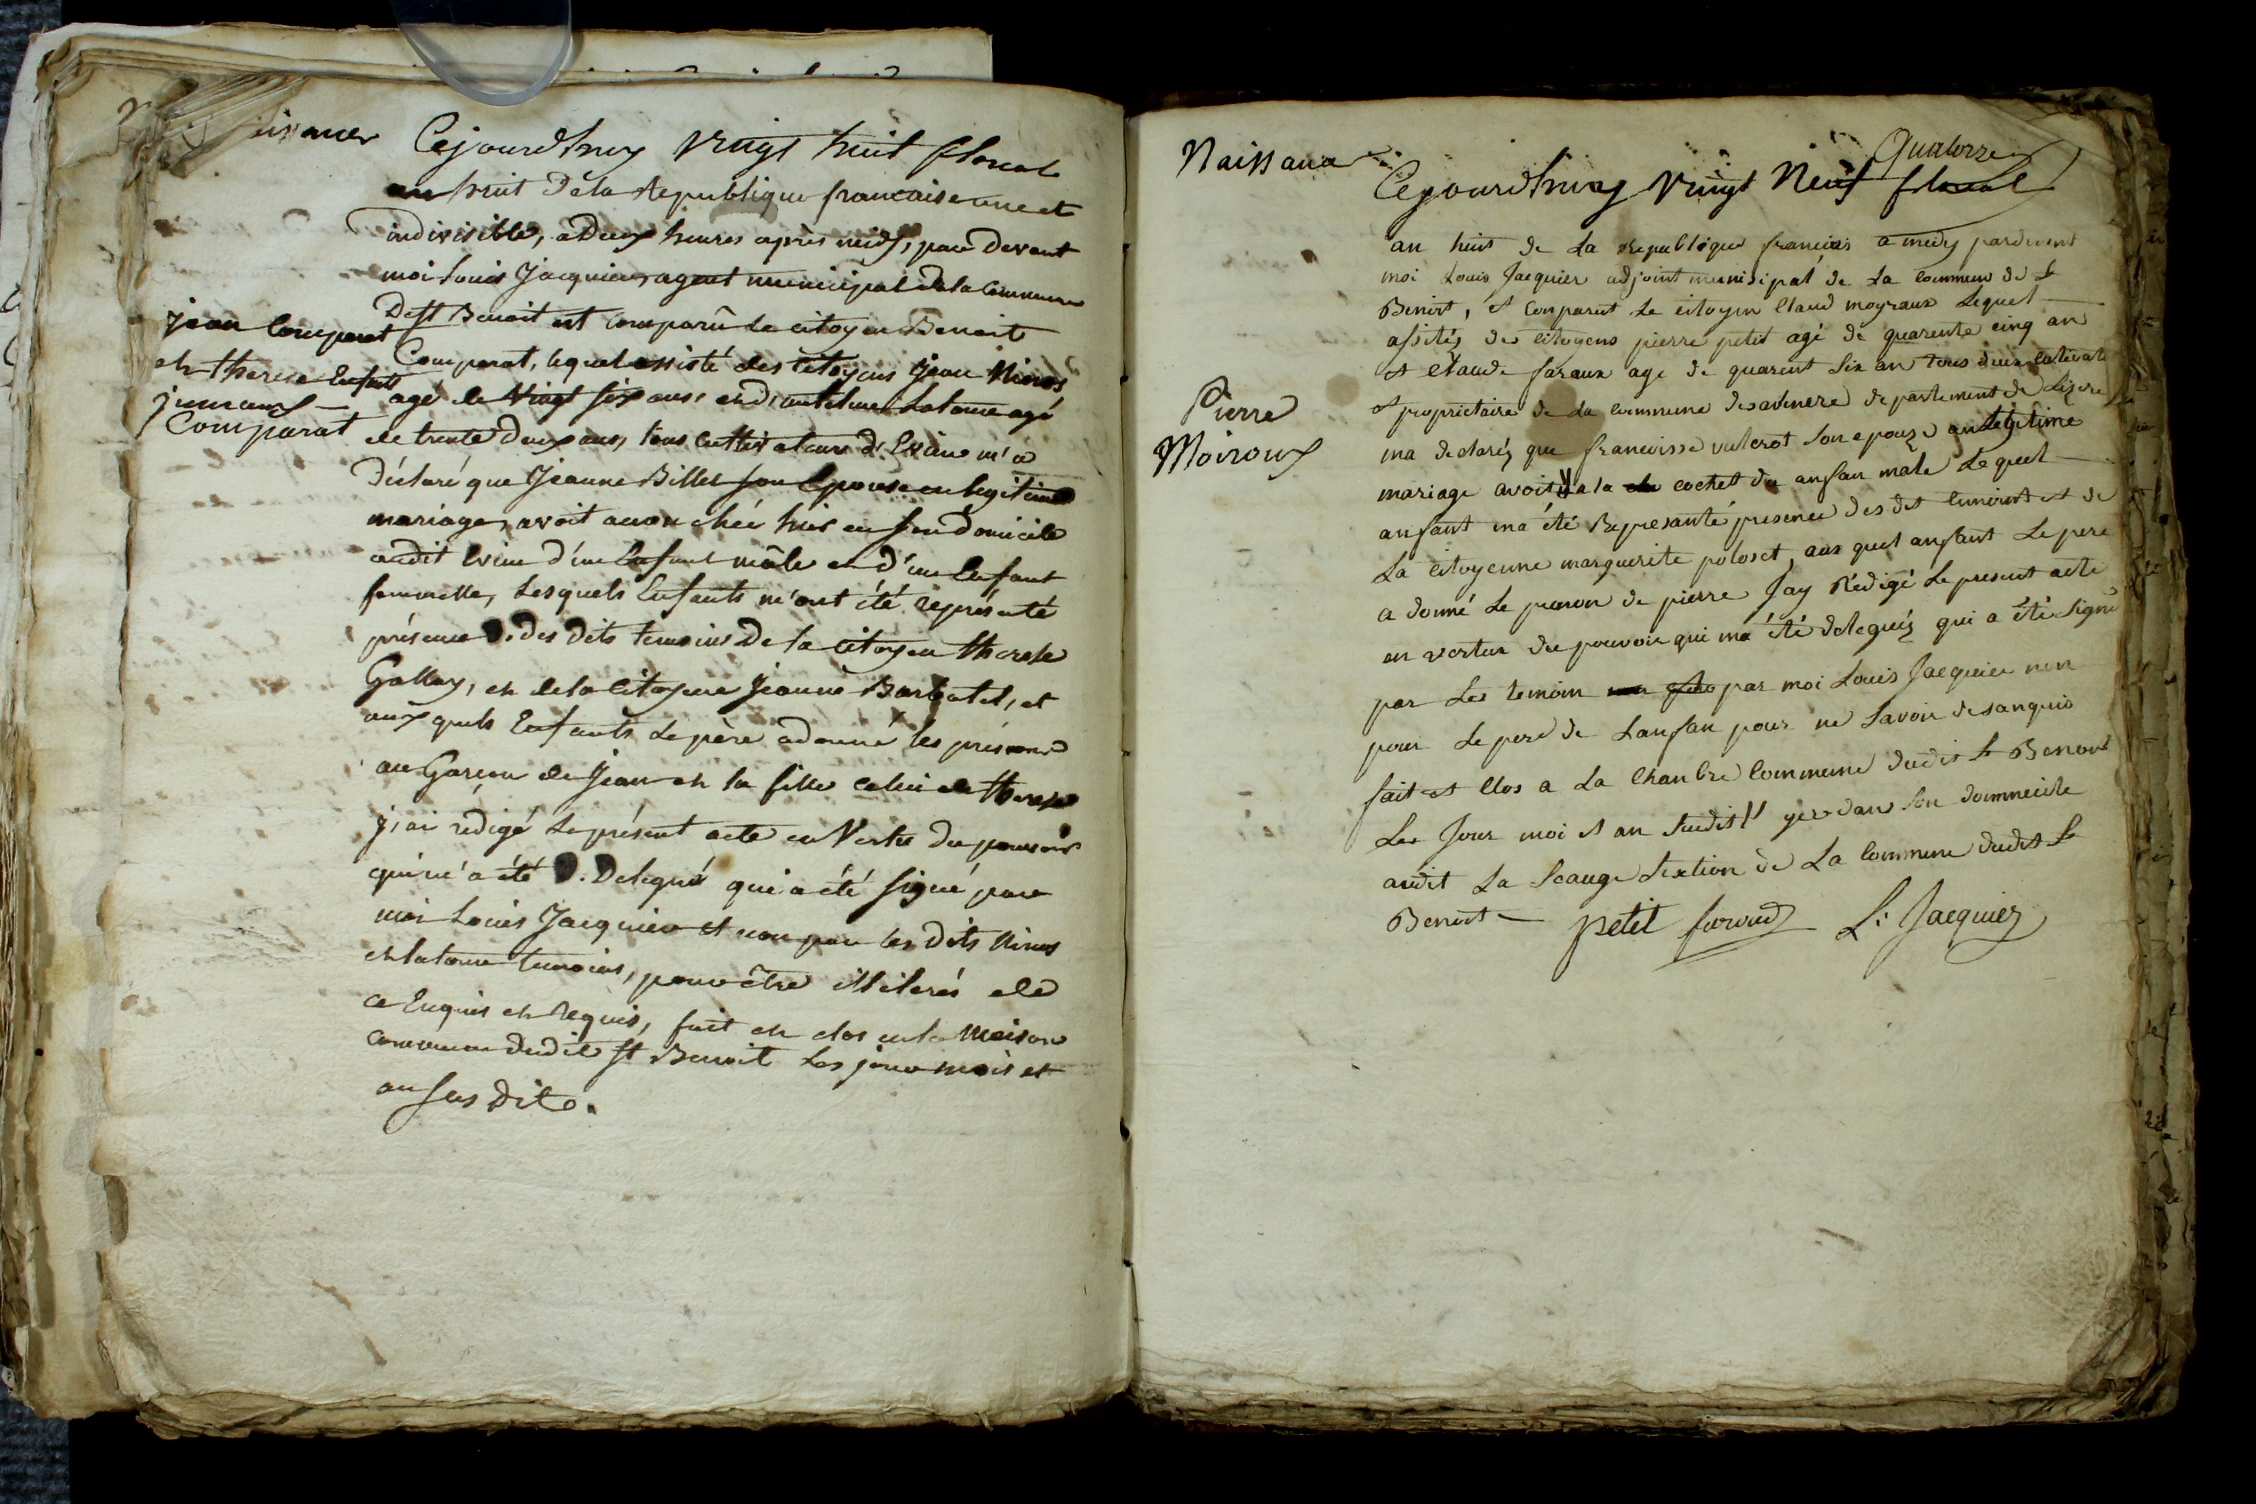 Cejourdhuy vingt huit floreal
an huit De la Republique francaise une et
indivisible, a Deux heures après midy, par Devant
moi Louis Jacquier, agent municipal de la Commune
De St Benoit est comparû Le citoyen Benoit
Comparat, lequel assisté des Citoyens Jean
agé de Vingt six ans, et d'anthelme Latome agé
de trente deux ans, tous cultivateurs d'Evieu m'a
Déclaré que Jeanne Billet son Epouse en legitime
mariage, avoit accouchée hier en son domicile
audit Evieu d'un Enfant mâle et d'un Enfant
femmelle, Lesquels Enfants m'ont été représenté
présence des dits temoins De la citoyen therese
Gallay, et de la Citoyene Jeanne Barbatel, et
auxquels Enfants Le père a donné les prénoms
au Garçon de Jean et la fille celui de therese
j'ai rédigé Le présent acte en Vertu du pouvoir
qui m'a été Delegué qui a été signé par
moi Louis Jacquier et non par les Dits
et latome temoins, pour être illiterés de
ce Enquis et Requis, fait et clos en la Maison
commune dudit St Benoit Les jour mois et
an sus Dits.
jean Comparat
et therese Enfants
jumeaux
Comparat
Quatorze
Naissance
Cejourdhuy vingt Neuf floreal
an huit de La Republique francais a midy pardevent
moi Louis Jacquier adjoint munisipal de La Commune de St
Benoit, et Conparut Le citoyen Claud moyraux Lequel
assités des Citoyens pierre petit agé de quarente cinq an
et Claude faraux age de quarent six an tous deux cultivat
et propriétaire de La Commune departement de Lizere
ma declaréz que francoisse vulerot son epouze an Legitime
mariage avoit a la cochet du anfan male Le quel
anfant ma été Represanté presence des dit temoint et de
La Citoyenne marguerite poloset, aux quel anfant Le pere
a donné Le prenon de pierre Jay Rédigé Le present acte
en vertux du pouvoir qui ma été deleguéz qui a été signé
par Les temoin par moi Louis Jacquier non
pour Le pere de Lanfan pour ne savoir de sanquis
fait et Clos a La Chanbre Commune dudit St Benoit
Les Jour moi et an sudit yer dans son dommicile
audit La Sauge section de La Commune dudit St
Benoit petit faraud L: Jacquier
Pierre
Moiroux